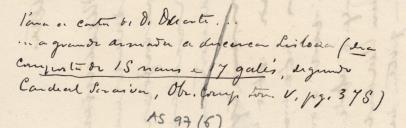 Para a carta de D. Duarte...
... a grande armada a descercar Lisboa (era
composta de 15 naus e 17 galés, segundo
Cardeal Saraiva, Obr. comp. tom. V, pg. 375)
AS 97 (6)